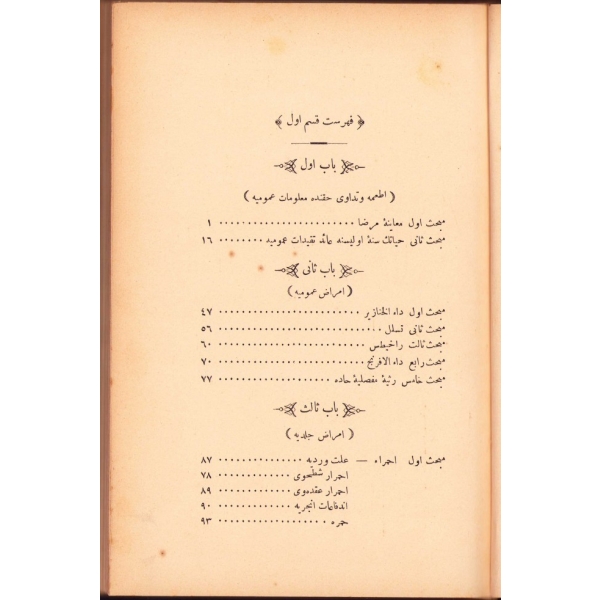 ﴿ فهرست قسم اول ﴾
باب اول
( اطعمه وتداوی حقنده معلومات عمومیه )
مبحث اول معاینهٔ مرضا ١
مبحث ثانی حیاتك سنهٔ اولیسنه عائد تقیدات عمومیه ١٦
باب ثانی
( امراض عمومیه )
مبحث اول داء الخنازیر ٤٧
مبحث ثانی تسلل ٥٦
مبحث ثالث راخیطس ٦٠
مبحث رابع داء الافرنج ٧٠
مبحث خامس رثیهٔ مفصلیهٔ حاده ٧٧
باب ثالث
( امراض جلدیه )
مبحث اول احمراء — علت وردیه ٨٧
احمرار شطحوی ٧٨
احمرار عقده‌وی ٨٩
اندفاعات انجریه ٩٠
حمره ٩٣